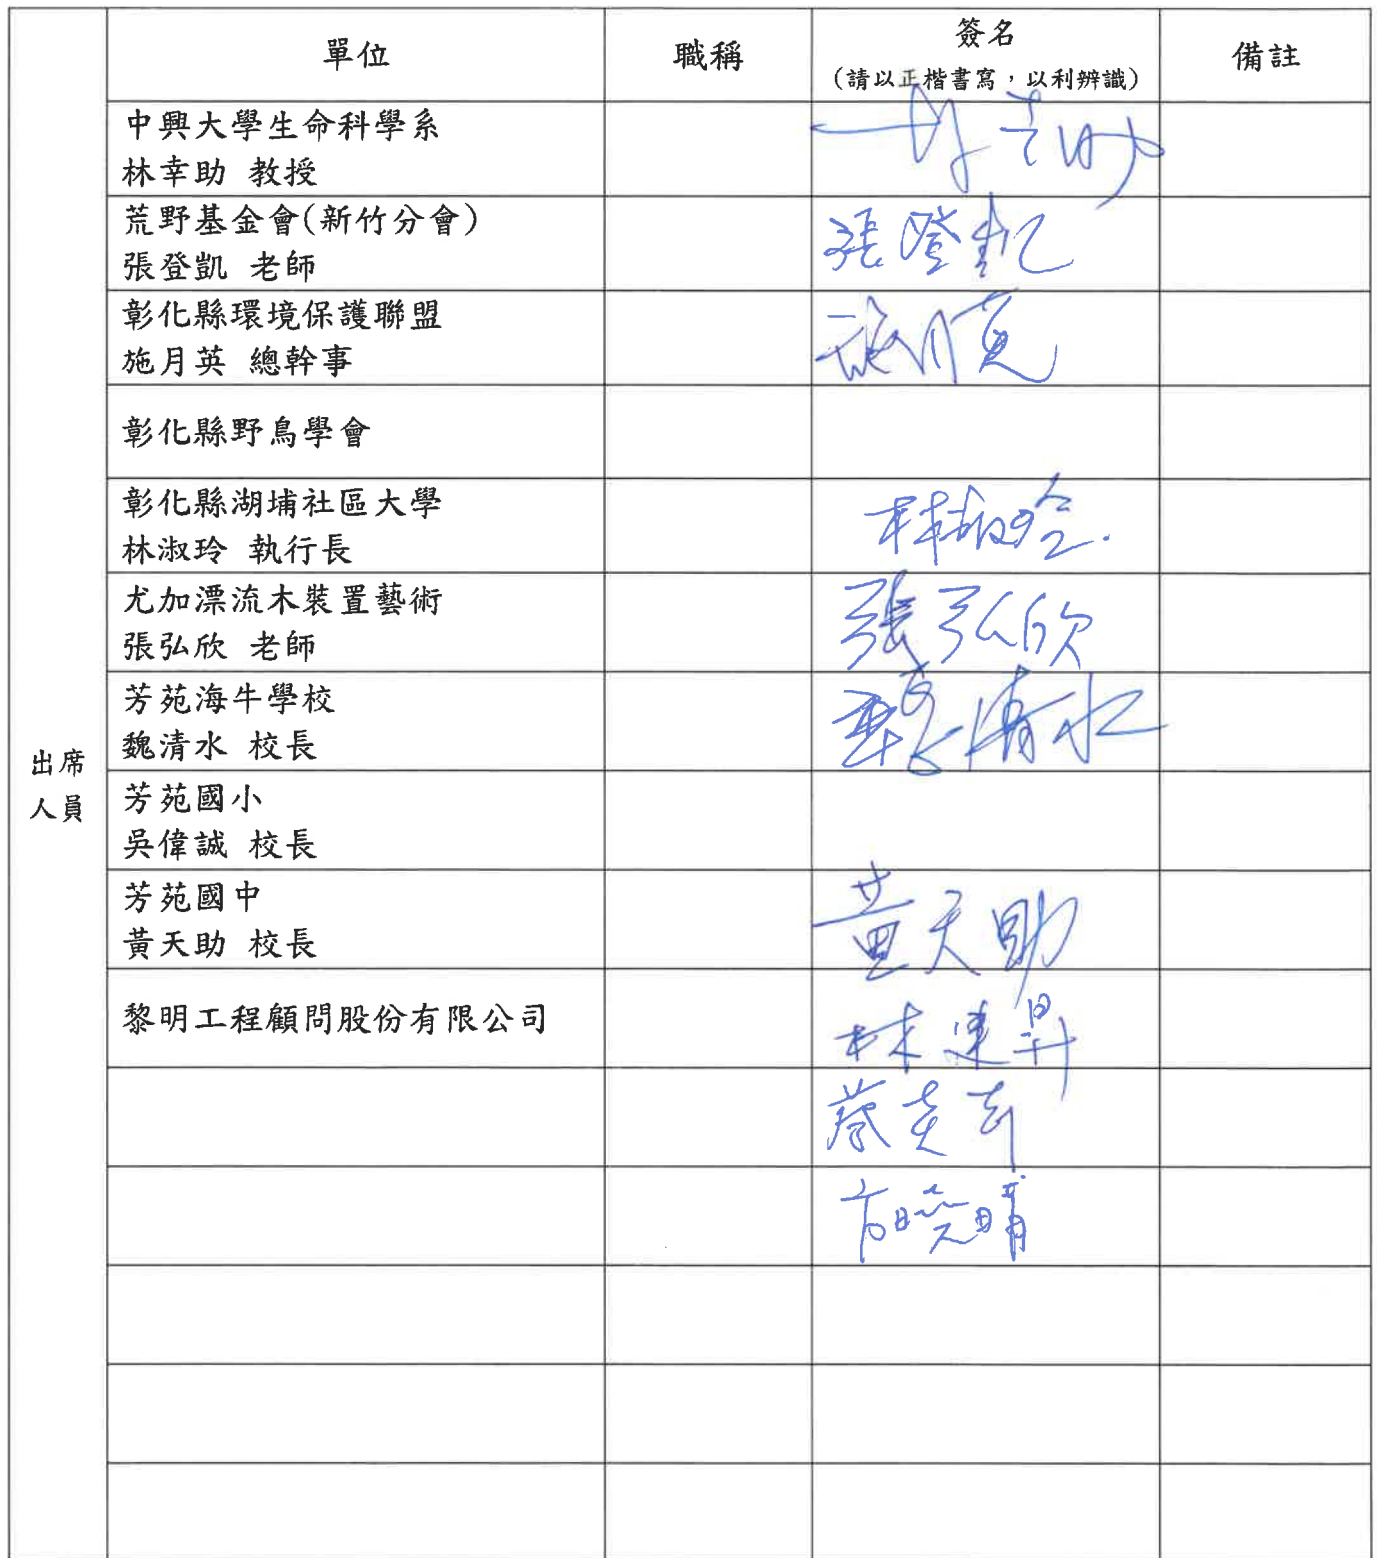 單位 職稱 簽名 備註
(請以正楷書寫，以利辨識)
出席
人員
中興大學生命科學系
林幸助 教授 林幸助
荒野基金會(新竹分會)
張登凱 老師 張登凱
彰化縣環境保護聯盟
施月英 總幹事 施月英
彰化縣野鳥學會
彰化縣湖埔社區大學
林淑玲 執行長 林淑玲
尤加漂流木裝置藝術
張弘欣 老師 張弘欣
芳苑海牛學校
魏清水 校長 魏清水
芳苑國小
吳偉誠 校長
芳苑國中
黃天助 校長 黃天助
黎明工程顧問股份有限公司 林建昇
蔡
方曉晴